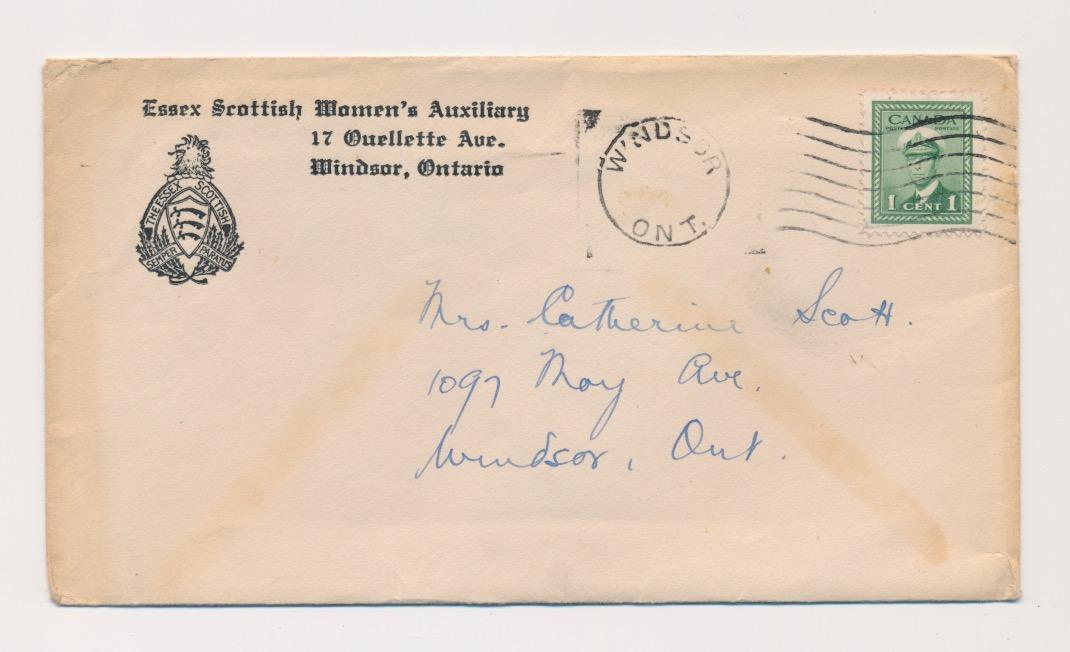 Essex Scottish Women's Auxiliary
17 Ouellette Ave.
Windsor, Ontario
THE ESSEX SCOTTISH
SEMPER PARATUS
WINDSOR
ONT.
CANADA
POSTES POSTAGE
1 CENT 1
Mrs. Catherine Scott.
1097 Moy Ave.
Windsor, Ont.